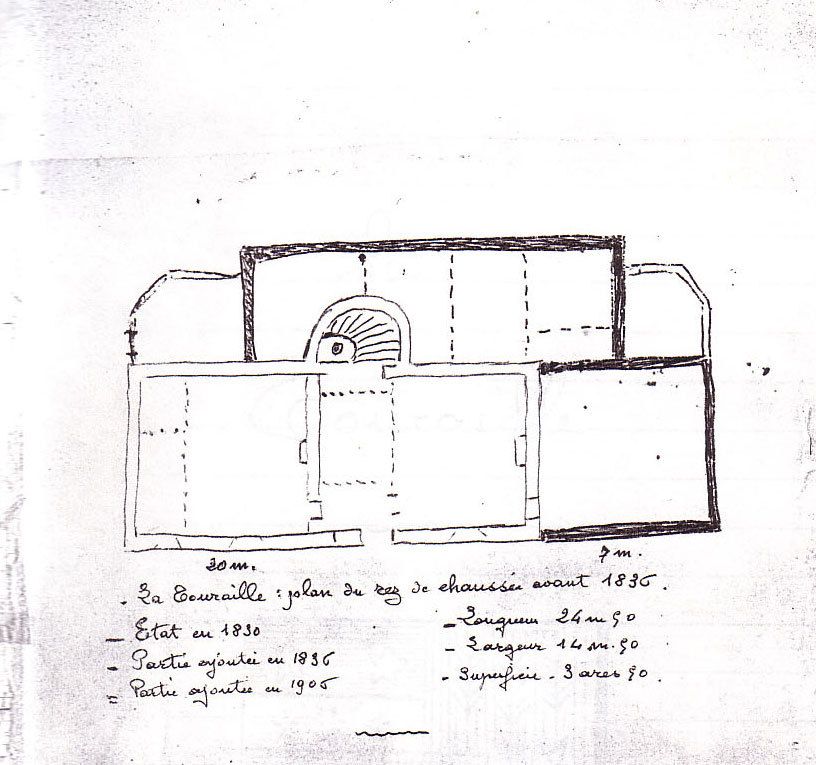 20 m.
7 m.
La Touraille : plan du rez de chaussée avant 1836.
Etat en 1830
Partie ajoutée en 1836
Partie ajoutée en 1906
- Longueur 24 m 90
- Largeur 14 m. 90
- Superficie - 3 ares 90.